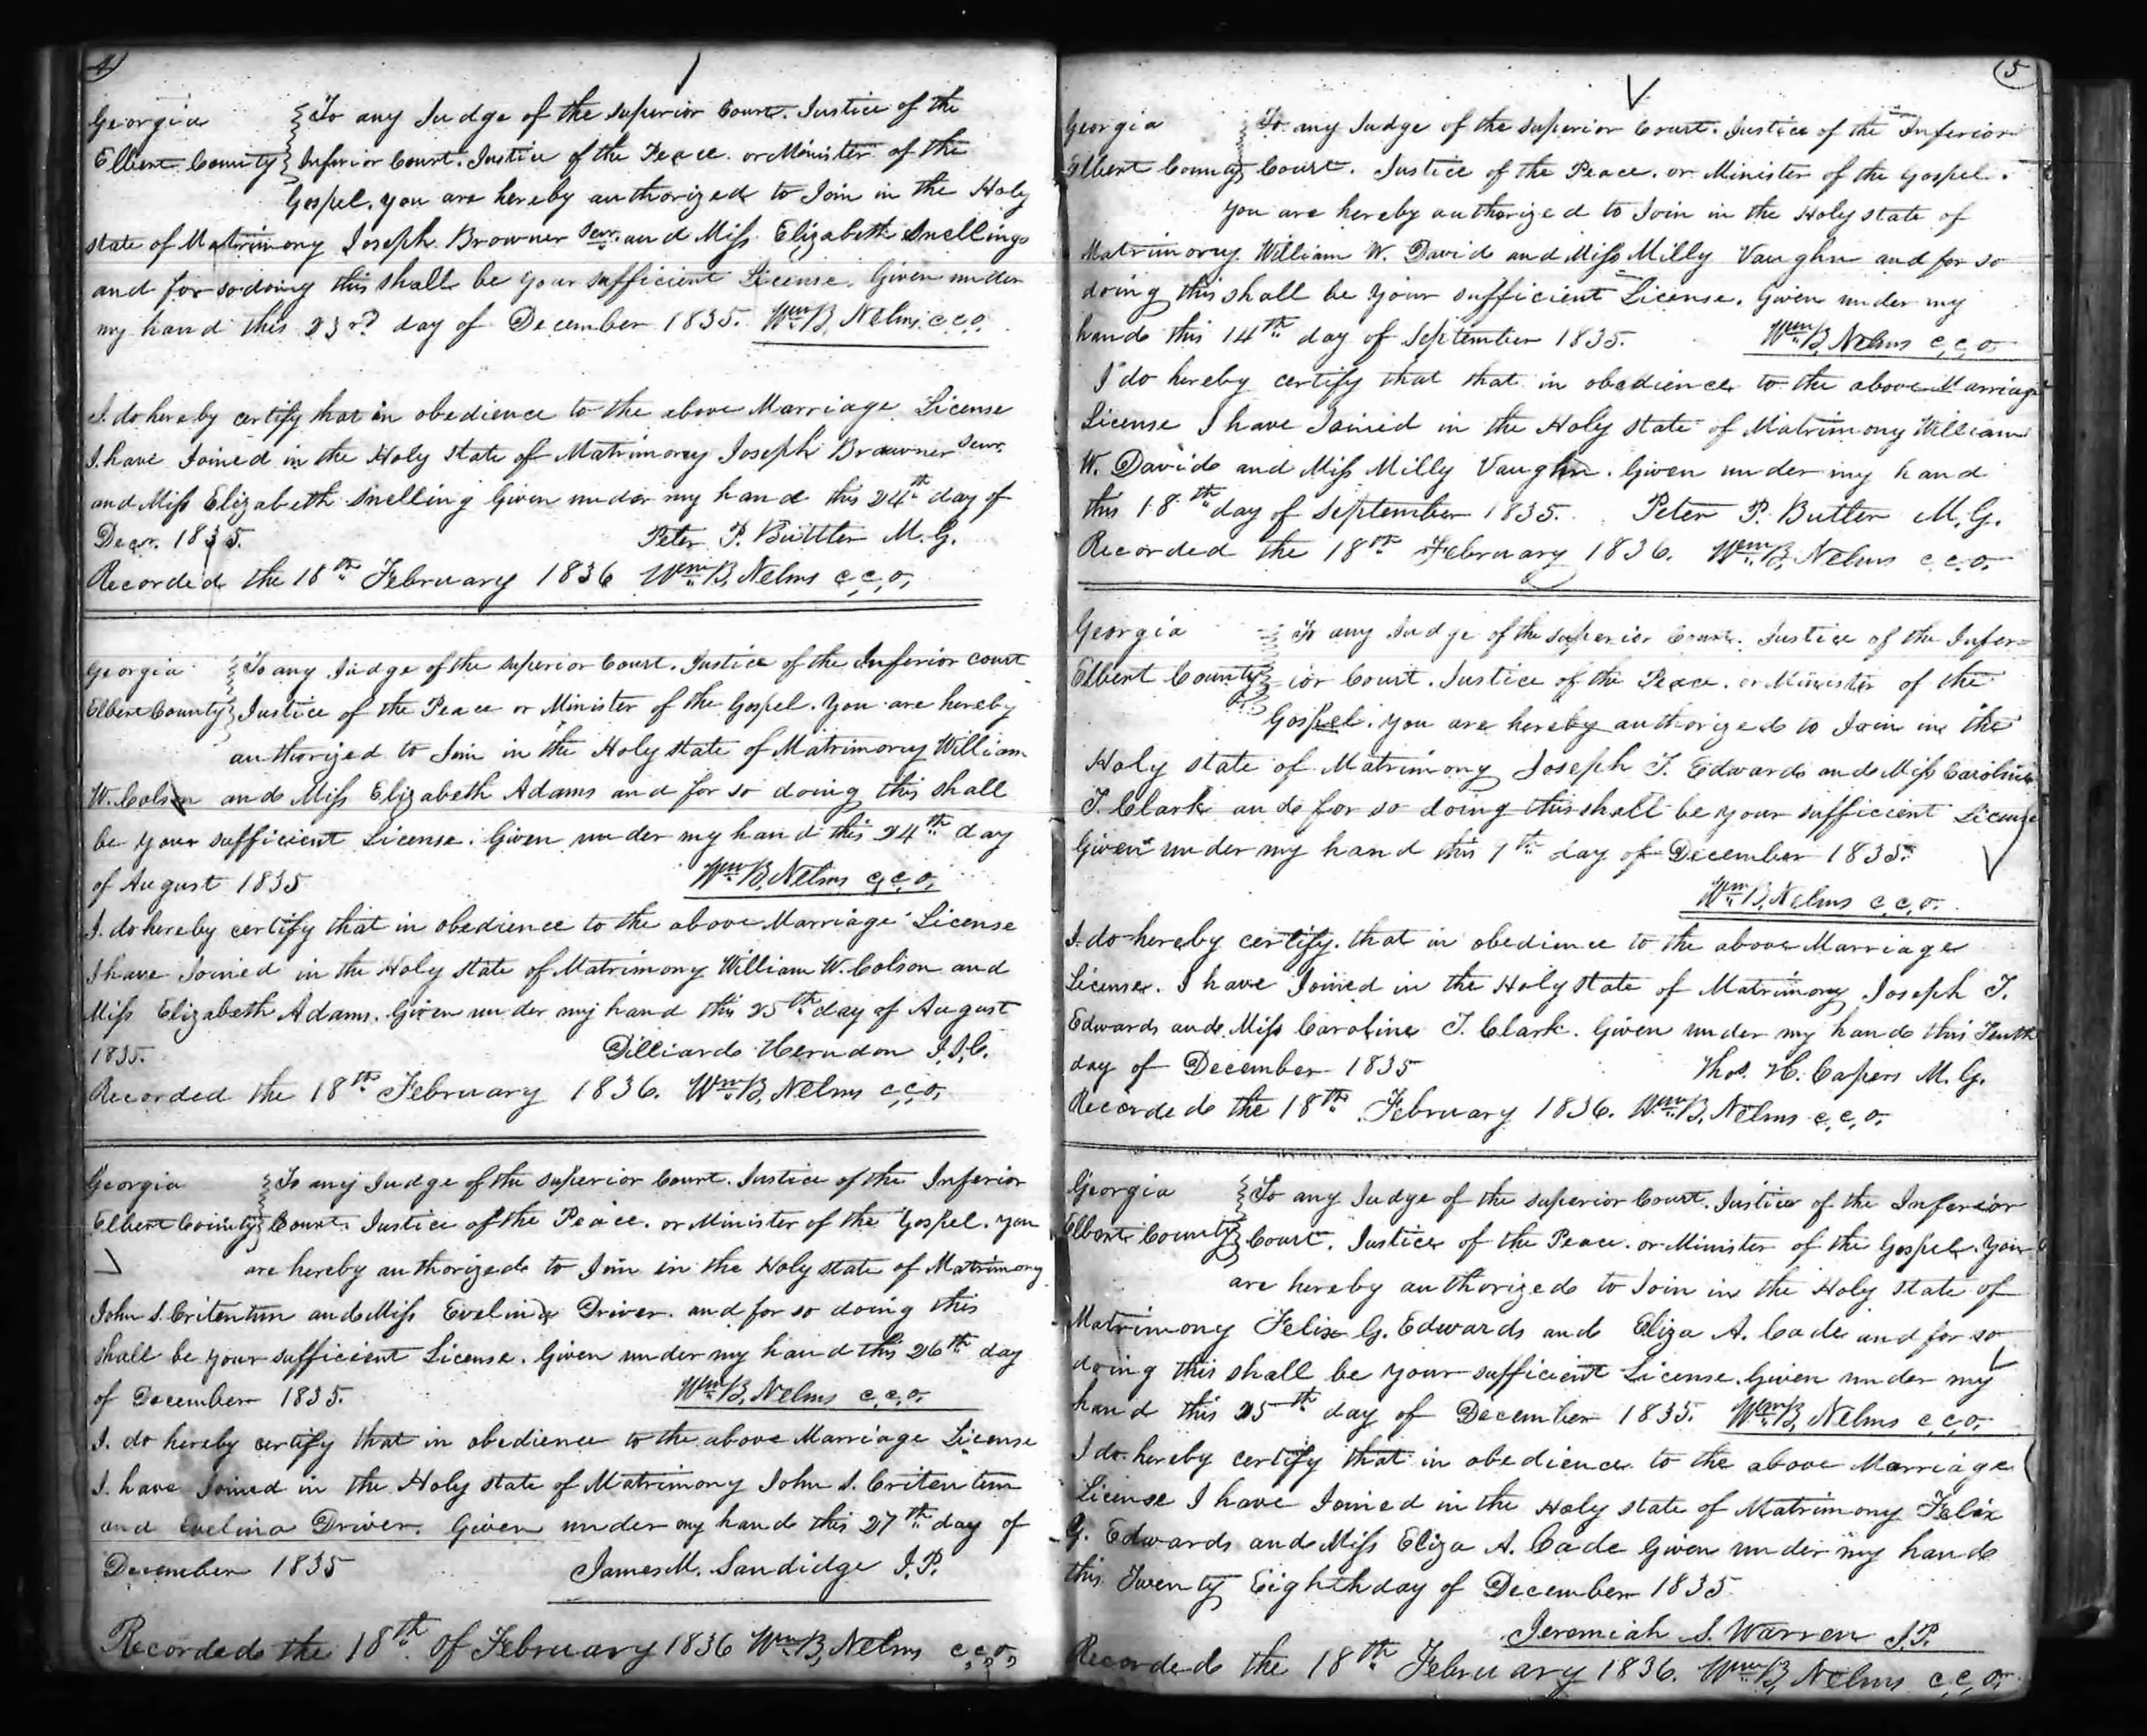 4
Georgia To any Judge of the Superior Court. Justice of the
Elbert County Inferior Court. Justice of the Peace. or Minister of the
Gospel. you are hereby authorized to Join in the Holy
state of Matrimony Joseph Browner Senr. and Miss Elizabeth Snellings
and for so doing this shall be your sufficient License. Given under
my hand this 23rd day of December 1835. Wm B, Nelms c.c.o.
I. do hereby certify that in obedience to the above Marriage License
I. have Joined in the Holy state of Matrimony Joseph Brawner Senr.
and Miss Elizabeth Snelling Given under my hand this 24th day of
Decr. 1835. Peter P. Buttler M.G.
Recorded the 18th February 1836 Wm B, Nelms c,c,o,
Georgia To any Judge of the Superior Court. Justice of the Inferior court
Elbert County Justice of the Peace or Minister of the Gospel. You are hereby
authorized to Join in the Holy state of Matrimony William
W. Colson and Miss Elizabeth Adams and for so doing this shall
be your sufficient License. Given under my hand this 24th day
of August 1835 Wm B, Nelms c,c,o,
I. do hereby certify that in obedience to the above Marriage License
I have Joined in the Holy state of Matrimony William W. Colson and
Miss Elizabeth Adams. Given under my hand this 25th day of August
1835. Dilliard Herndon J.I.C.
Recorded the 18th February 1836. Wm B, Nelms c,c,o,
Georgia To any Judge of the Superior Court. Justice of the Inferior
Elbert County Court. Justice of the Peace. or Minister of the Gospel. you
are hereby authorized to Join in the Holy state of Matrimony
John S. Critentun and Miss Evelina Driver. and for so doing this
shall be your sufficient License. Given under my hand this 26th day
of December 1835. Wm B, Nelms c,c,o.
I. do hereby certify that in obedience to the above Marriage License
I. have Joined in the Holy state of Matrimony John S. Critentun
and Evelina Driver. Given under my hand this 27th day of
December 1835 James M. Sandidge J.P.
Recorded the 18th of February 1836 Wm B, Nelms c,c,o,
5
Georgia To any Judge of the Superior Court. Justice of the Inferior
Elbert County Court. Justice of the Peace. or Minister of the Gospel.
you are hereby authorized to Join in the Holy state of
Matrimony William W. David and Miss Milly Vaughn and for so
doing this shall be your sufficient License. Given under my
hand this 14th day of September 1835. Wm B, Nelms c,c,o.
I do hereby certify that that in obedience to the above Marriage
License I have Joined in the Holy state of Matrimony William
W. David and Miss Milly Vaughn. Given under my hand
this 18th day of September 1835. Peter P. Butler M.G.
Recorded the 18th February 1836. Wm B, Nelms c.c.o.
Georgia To any Judge of the Superior Court. Justice of the Infer=
Elbert County ior Court. Justice of the Peace. or Minister of the
Gospel. you are hereby authorized to Join in the
Holy state of Matrimony Joseph T. Edwards and Miss Caroline
T. Clark and for so doing this shall be your sufficient License
Given under my hand this 7th day of December 1835.
Wm B, Nelms c,c,o.
I. do hereby certify. that in obedience to the above Marriage
License. I have Joined in the Holy state of Matrimony Joseph T.
Edwards and Miss Caroline T. Clark. Given under my hand this Tenth
day of December 1835 Thos. H. Capers M.G.
Recorded the 18th February 1836. Wm B, Nelms c,c,o.
Georgia To any Judge of the Superior Court. Justice of the Inferior
Elbert County Court. Justice of the Peace. or Minister of the Gospel. You
are hereby authorized to Join in the Holy state of
Matrimony Felix G. Edwards and Eliza A. Cade and for so
doing this shall be your sufficient License. Given under my
hand this 25th day of December 1835. Wm B, Nelms c,c,o.
I do hereby certify that in obedience to the above Marriage
License I have Joined in the Holy state of Matrimony Felix
G. Edwards and Miss Eliza A. Cade Given under my hand
this Twenty Eighth day of December 1835
Jeremiah S. Warren J.P.
Recorded the 18th February 1836. Wm B, Nelms c,c,o.